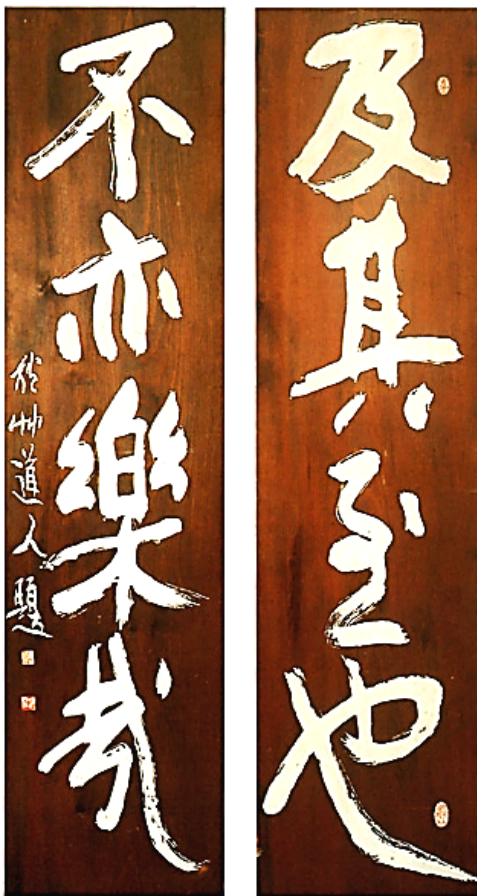 及其至也
不亦樂哉
道人題